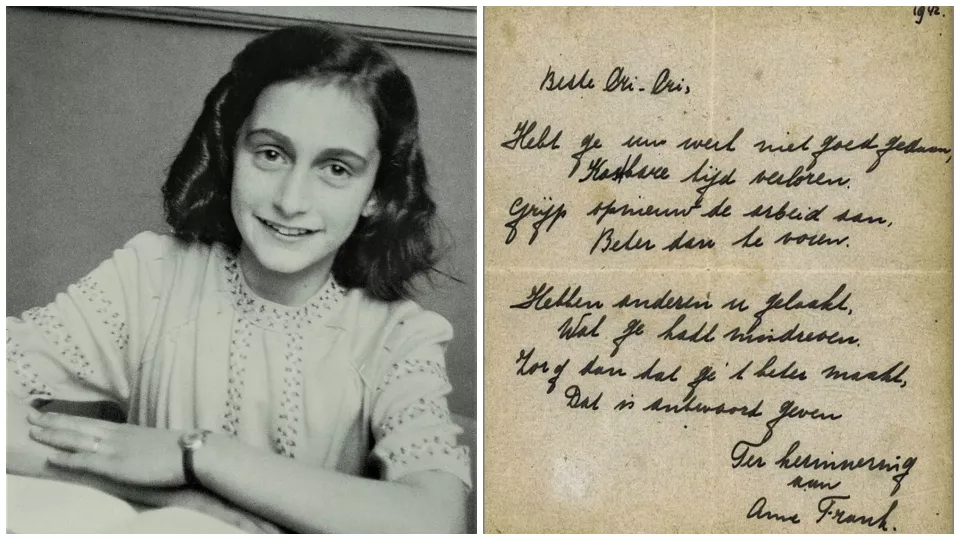 1942.
Beste Cri-Cri,
Hebt ge uw werk niet goed gedaan,
Kostbare tijd verloren.
Grijp opnieuw de arbeid aan,
Beter dan te voren.
Hebben anderen u gelaakt,
Wat ge hadt misdreven.
Zorg dan dat ge 't beter maakt,
Dat is antwoord geven
Ter herinnering
aan
Anne Frank.